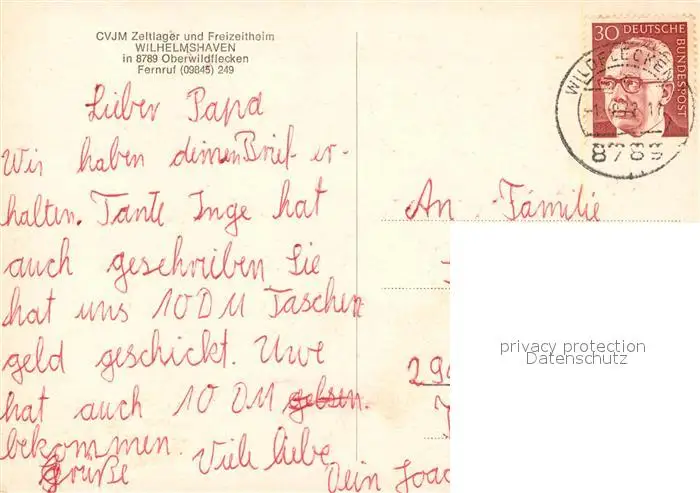 CVJM Zeltlager und Freizeitheim
WILHELMSHAVEN
in 8789 Oberwildflecken
Fernruf (09845) 249
30 DEUTSCHE BUNDESPOST
WILDFLECKEN
8789
Lieber Papa
Wir haben deinen Brief er-
halten. Tante Inge hat
auch geschrieben Sie
hat uns 10 DM Taschen
geld geschickt. Uwe
hat auch 10 DM
bekommen. Viele liebe
Grüße Dein Joac
An Familie
privacy protection
Datenschutz